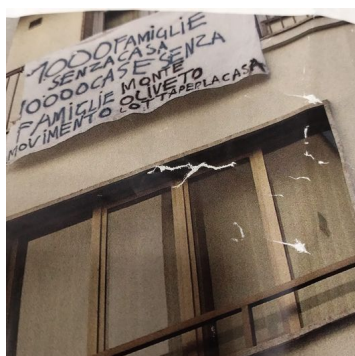 1000 FAMIGLIE
SENZA CASA
10000 CASE SENZA
FAMIGLIE MONTE
OLIVETO
MOVIMENTO LOTTA PER LA CASA